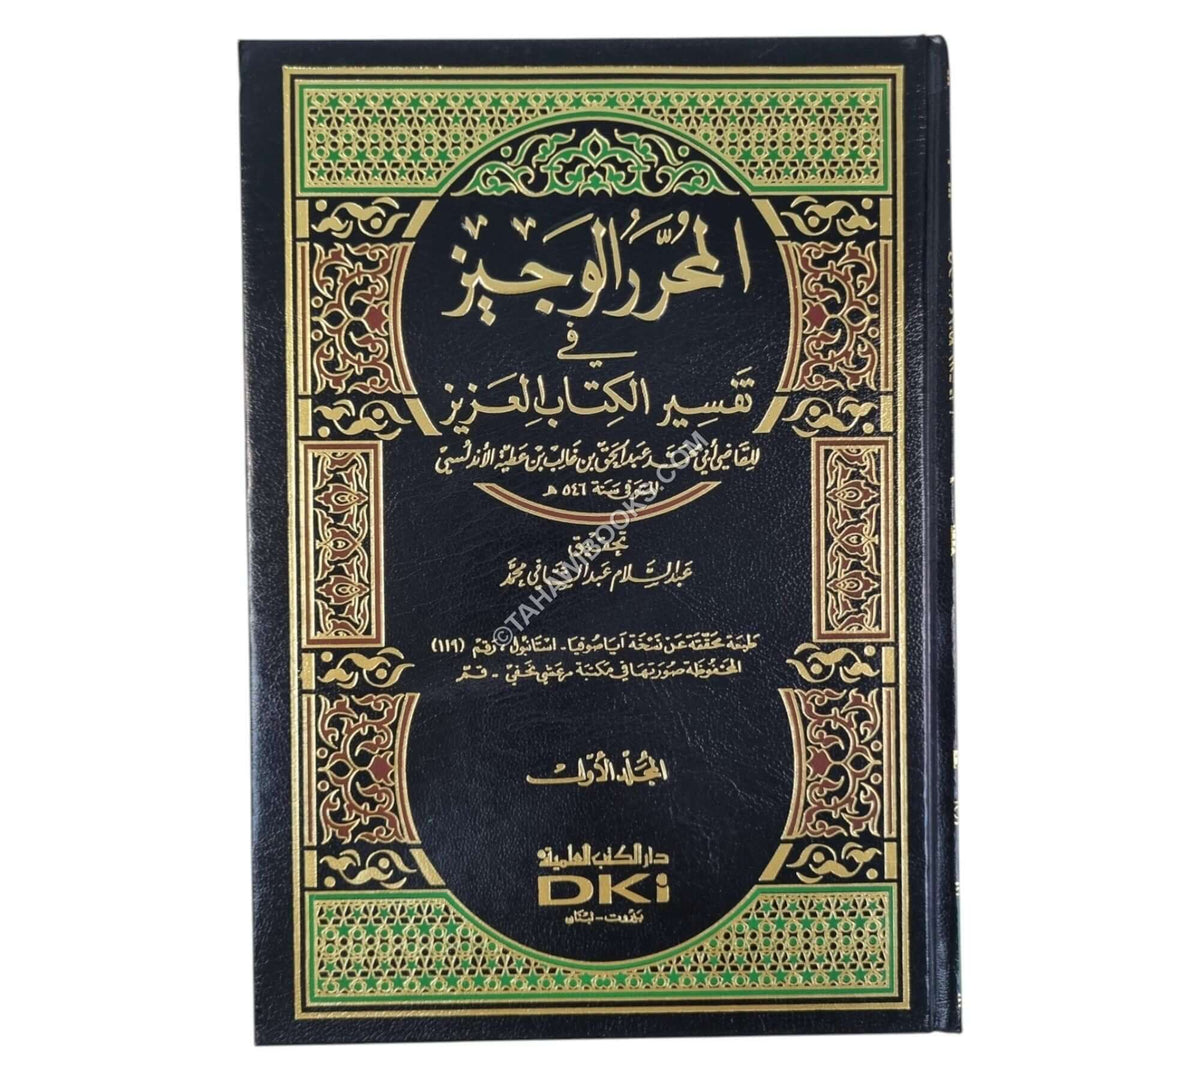 المحُرَّرُ الوَجِيز
في
تفَسِير الكِتاب العَزيز
للقاضي أبي محمد عبد الحق بن غالب بن عطية الأندلسي
المتوفى سنة ٥٤٦ هـ
تحقيق
عبد السلام عبد الشافي محمد
طبعة محققة عن نسخة آيا صوفيا - استانبول، رقم (١١٩)
المحفوظة صورتها في مكتبة مرعشي نجفي - قم
المجلد الأول
دار الكتب العلمية
DKi
بيروت - لبنان
©TAHAWIBOOKS.COM